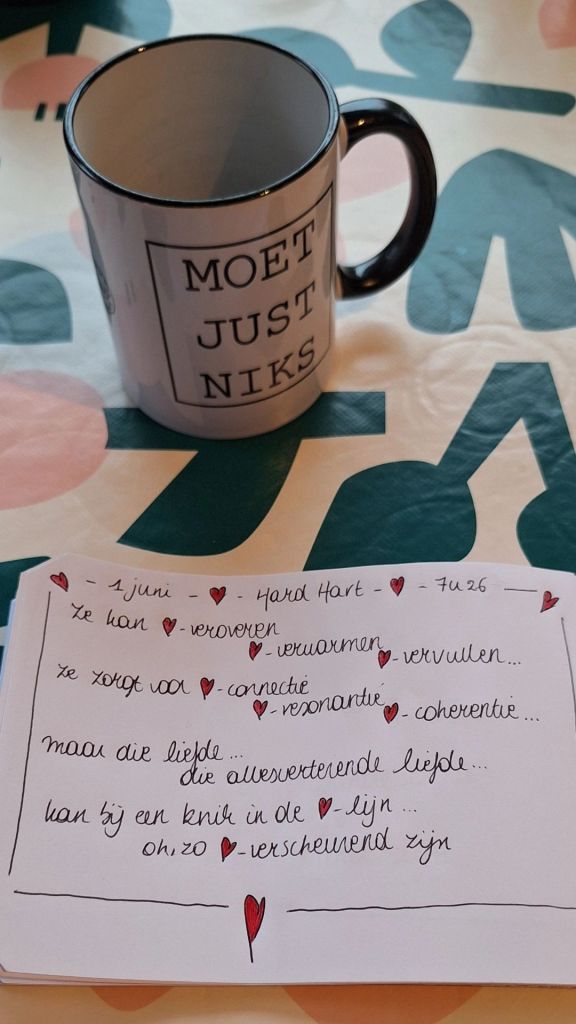 MOET
JUST
NIKS
- 1 juni - ♥ - Hard Hart - ♥ - 7u26
Ze kan ♥-veroveren
♥-verwarmen
♥-vervullen...
Ze zorgt voor ♥-connectie
♥-resonantie
♥-coherentie...
maar die liefde...
die allesverterende liefde...
kan bij een knik in de ♥-lijn...
oh, zo ♥-verscheurend zijn